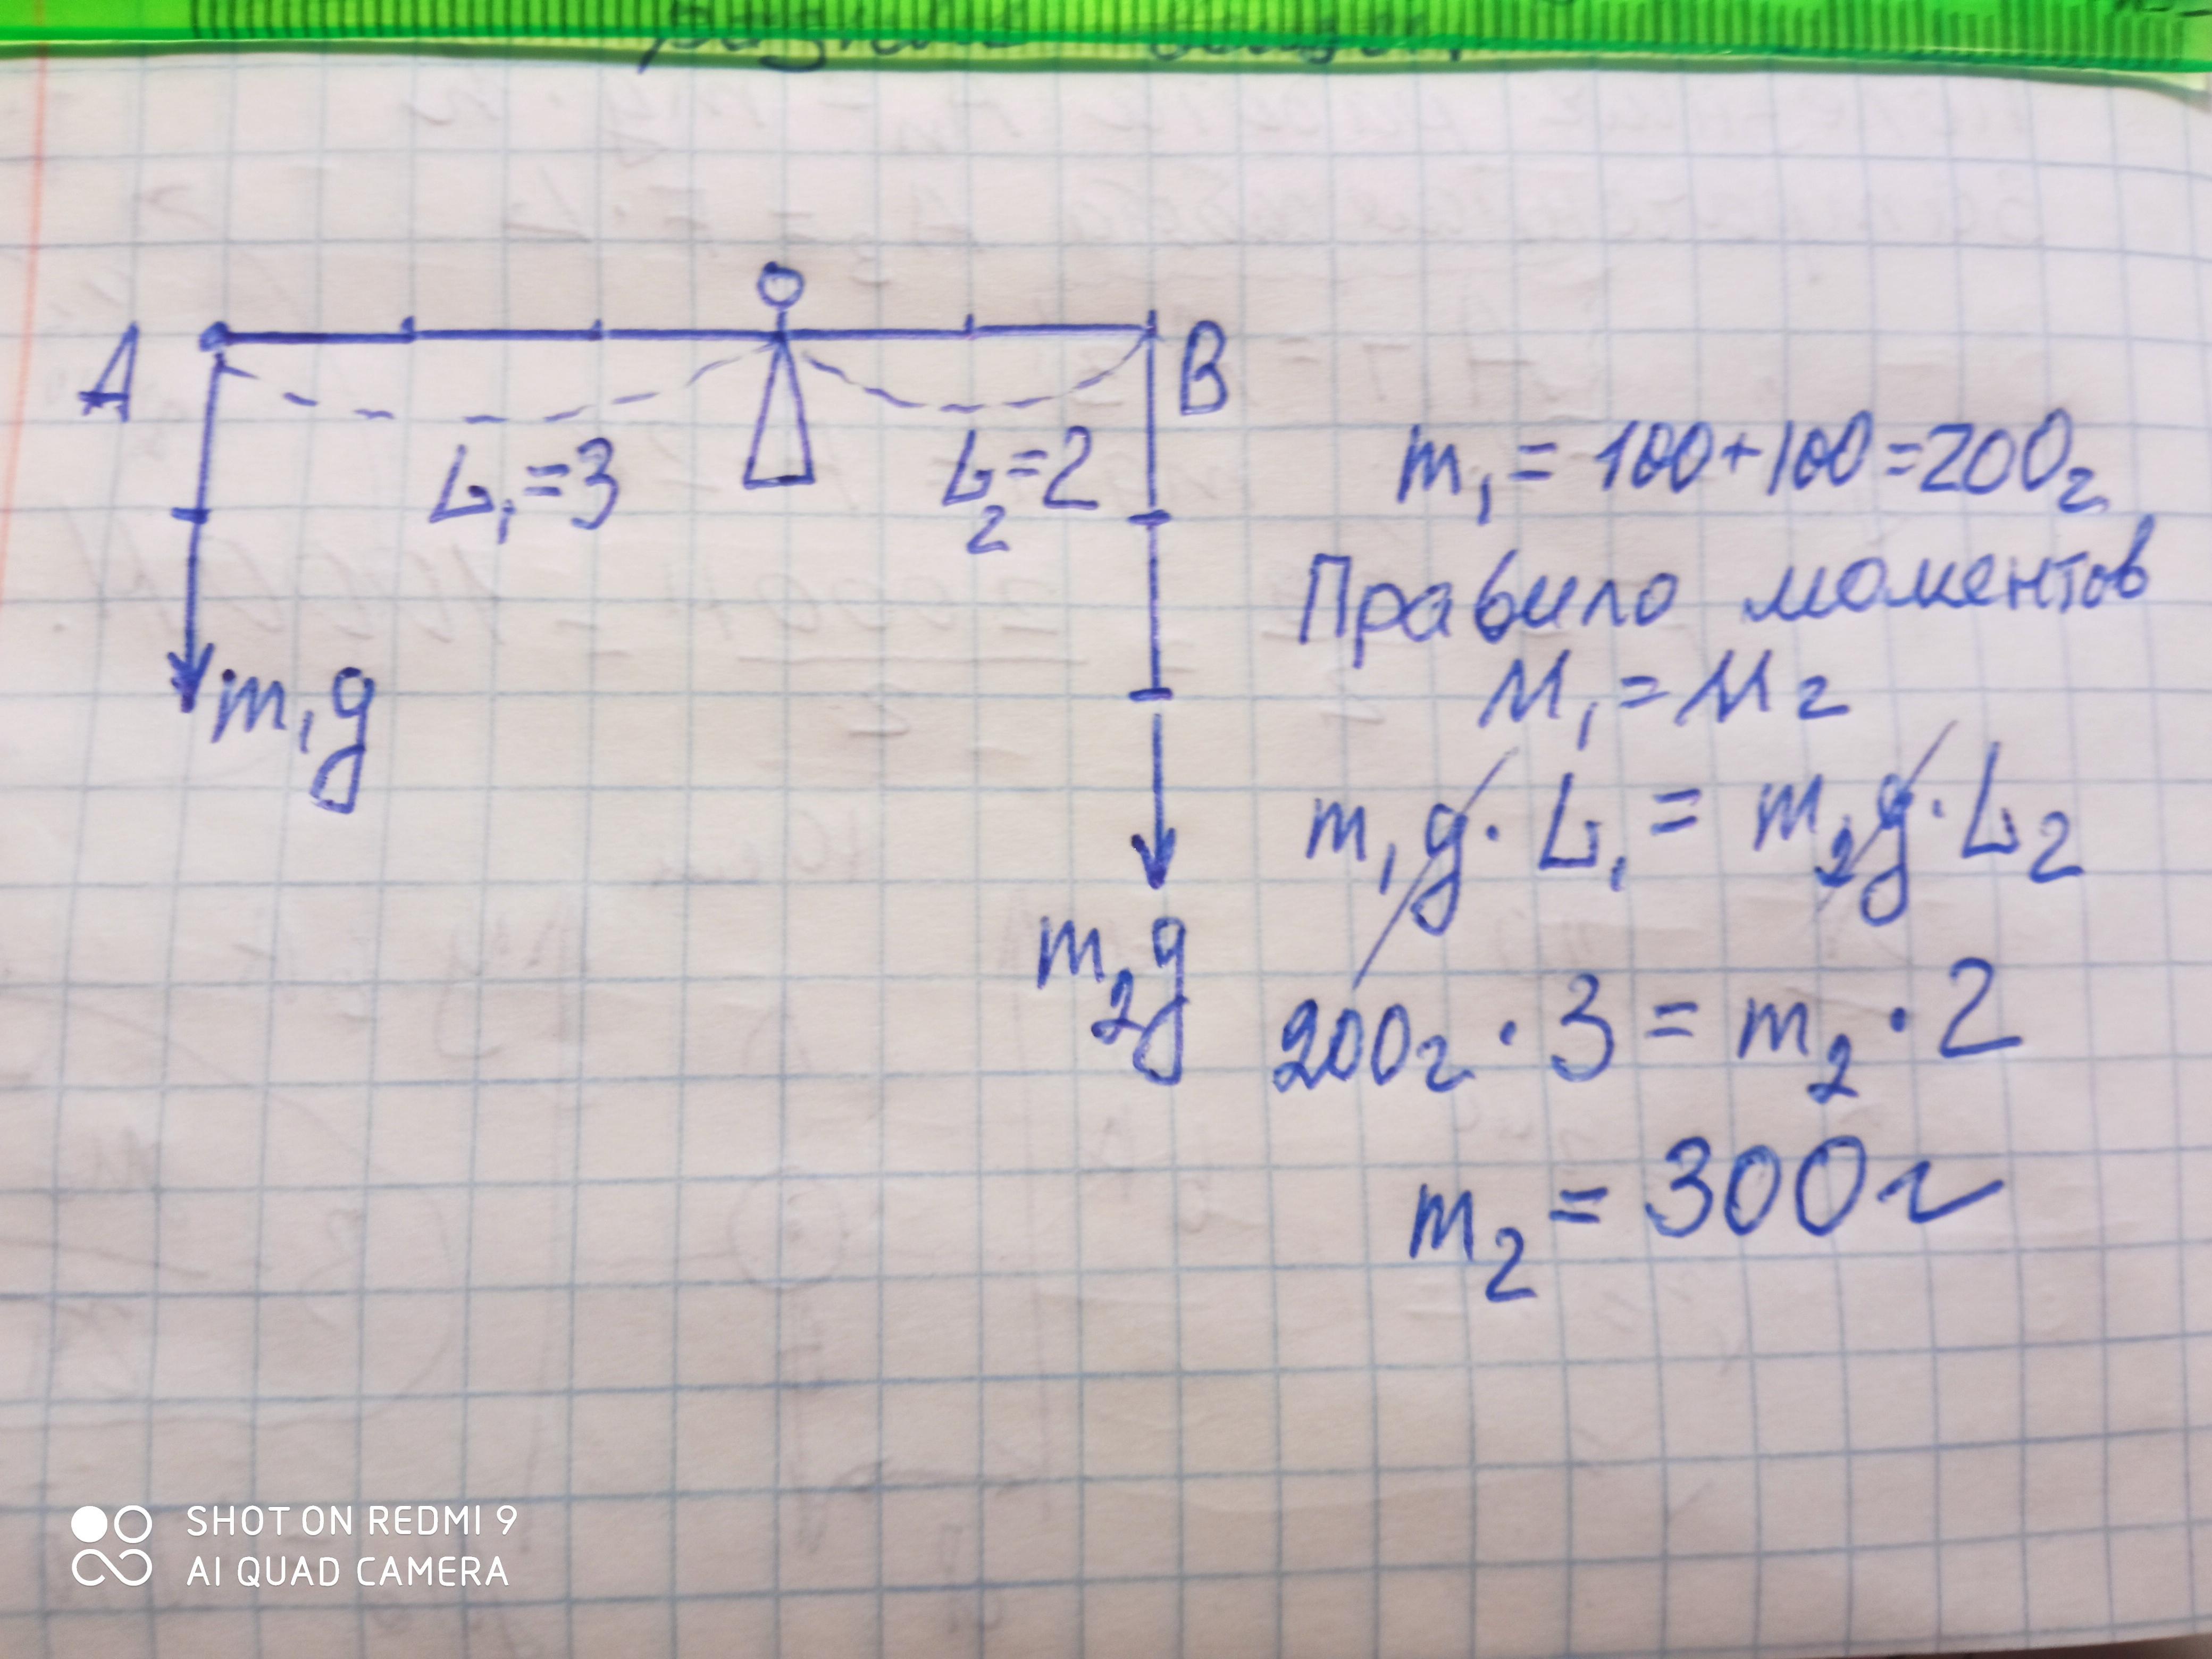 A
B
L₁=3
L₂=2
m₁g
m₂g
m₁=100+100=200г
Правило моментов
M₁=M₂
m₁g·L₁=m₂g·L₂
200г·3=m₂·2
m₂=300г
SHOT ON REDMI 9
AI QUAD CAMERA